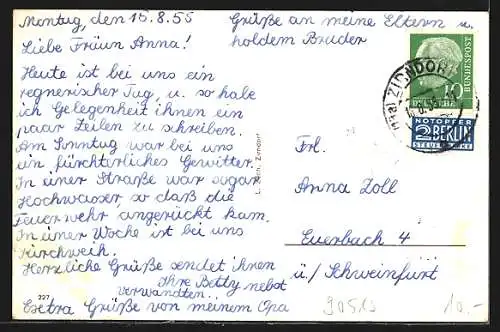 Montag, den 15.8.55
Liebe Fräun Anna!
Heute ist bei uns ein
regnerischer Tag, u. so habe
ich Gelegenheit ihnen ein
paar Zeilen zu schreiben.
Am Sonntag war bei uns
ein fürchterliches Gewitter.
In einer Straße war sogar
Hochwasser, so daß die
Feuerwehr angerückt kam.
In einer Woche ist bei uns
Kürchweih.
Herzliche Grüße sendet ihnen
Ihre Betty nebst
verwandten.
Esetra Grüße von meinem Opa
Grüße an meine Eltern u.
holdem Bruder
10
DEUTSCHE
BUNDESPOST
ZIRNDORF
NOTOPFER
2 BERLIN
STEUERMARKE
Zirndorf
Frl.
Anna Zoll
Euerbach 4
ü/ Schweinfurt
227
90513
10.-